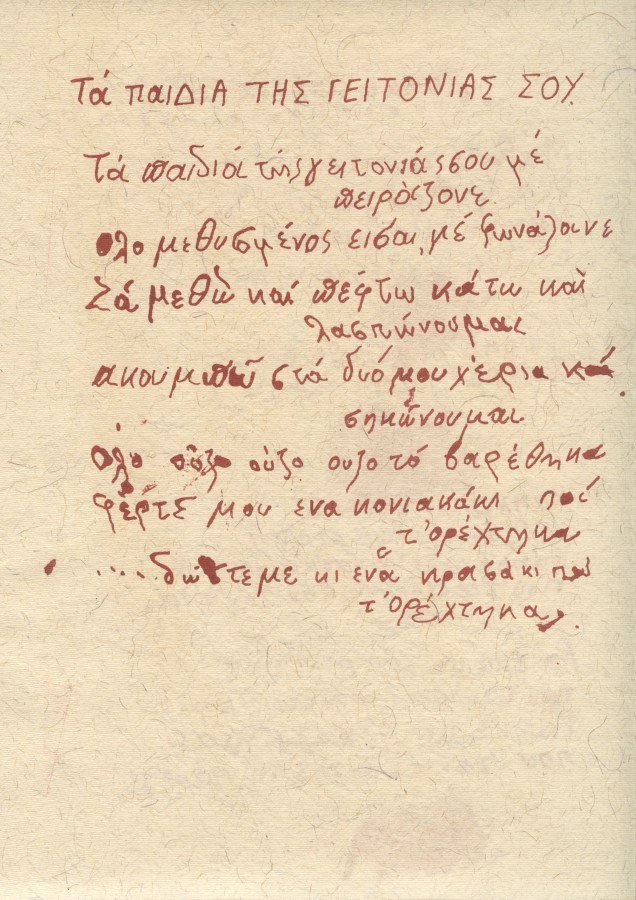 Τά ΠΑΙΔΙΑ ΤΗΣ ΓΕΙΤΟΝΙΑΣ ΣΟΥ.
Τά παιδιά τής γειτονιάς σου μέ
πειράζονε
Ολο μεθυσμένος εισαι, μέ φωνάζουνε
Σά μεθώ καί πέφτω κάτω καί
λασπώνουμαι
ακουμπῶ στά δυό μου χέρια καί
σηκώνουμαι
Ολο οὔζο οὔζο ουζο τό βαρέθηκα
Φέρτε μου ενα κονιακάκι πού
τ'ορέχτηκα
.... δώστε με κι ενα κρασάκι πού
τ'ορέχτηκα.